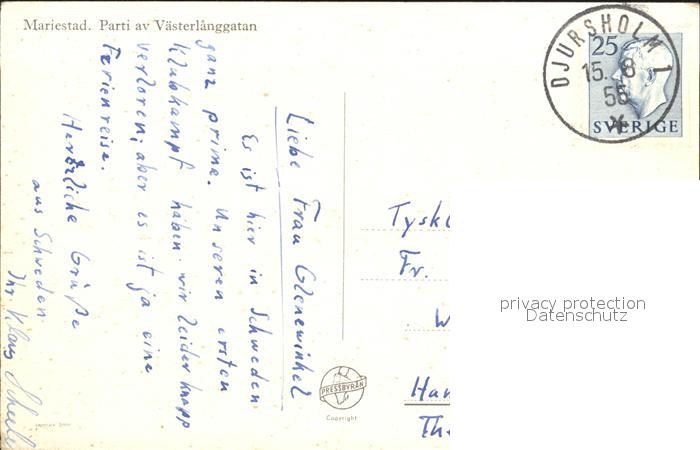 Mariestad. Parti av Västerlånggatan
DJURSHOLM 1
15. 8
55
25
SVERIGE
Liebe Frau
Es ist hier in Schweden
ganz prima. Unseren ersten
Klubkampf haben wir leider knapp
verloren, aber es ist ja eine
Ferienreise.
Herzliche Grüße
aus Schweden
Ihr Klaus
Tysk
Fr.
W
Han
Th.
PRESSBYRÅN
Copyright
privacy protection
Datenschutz